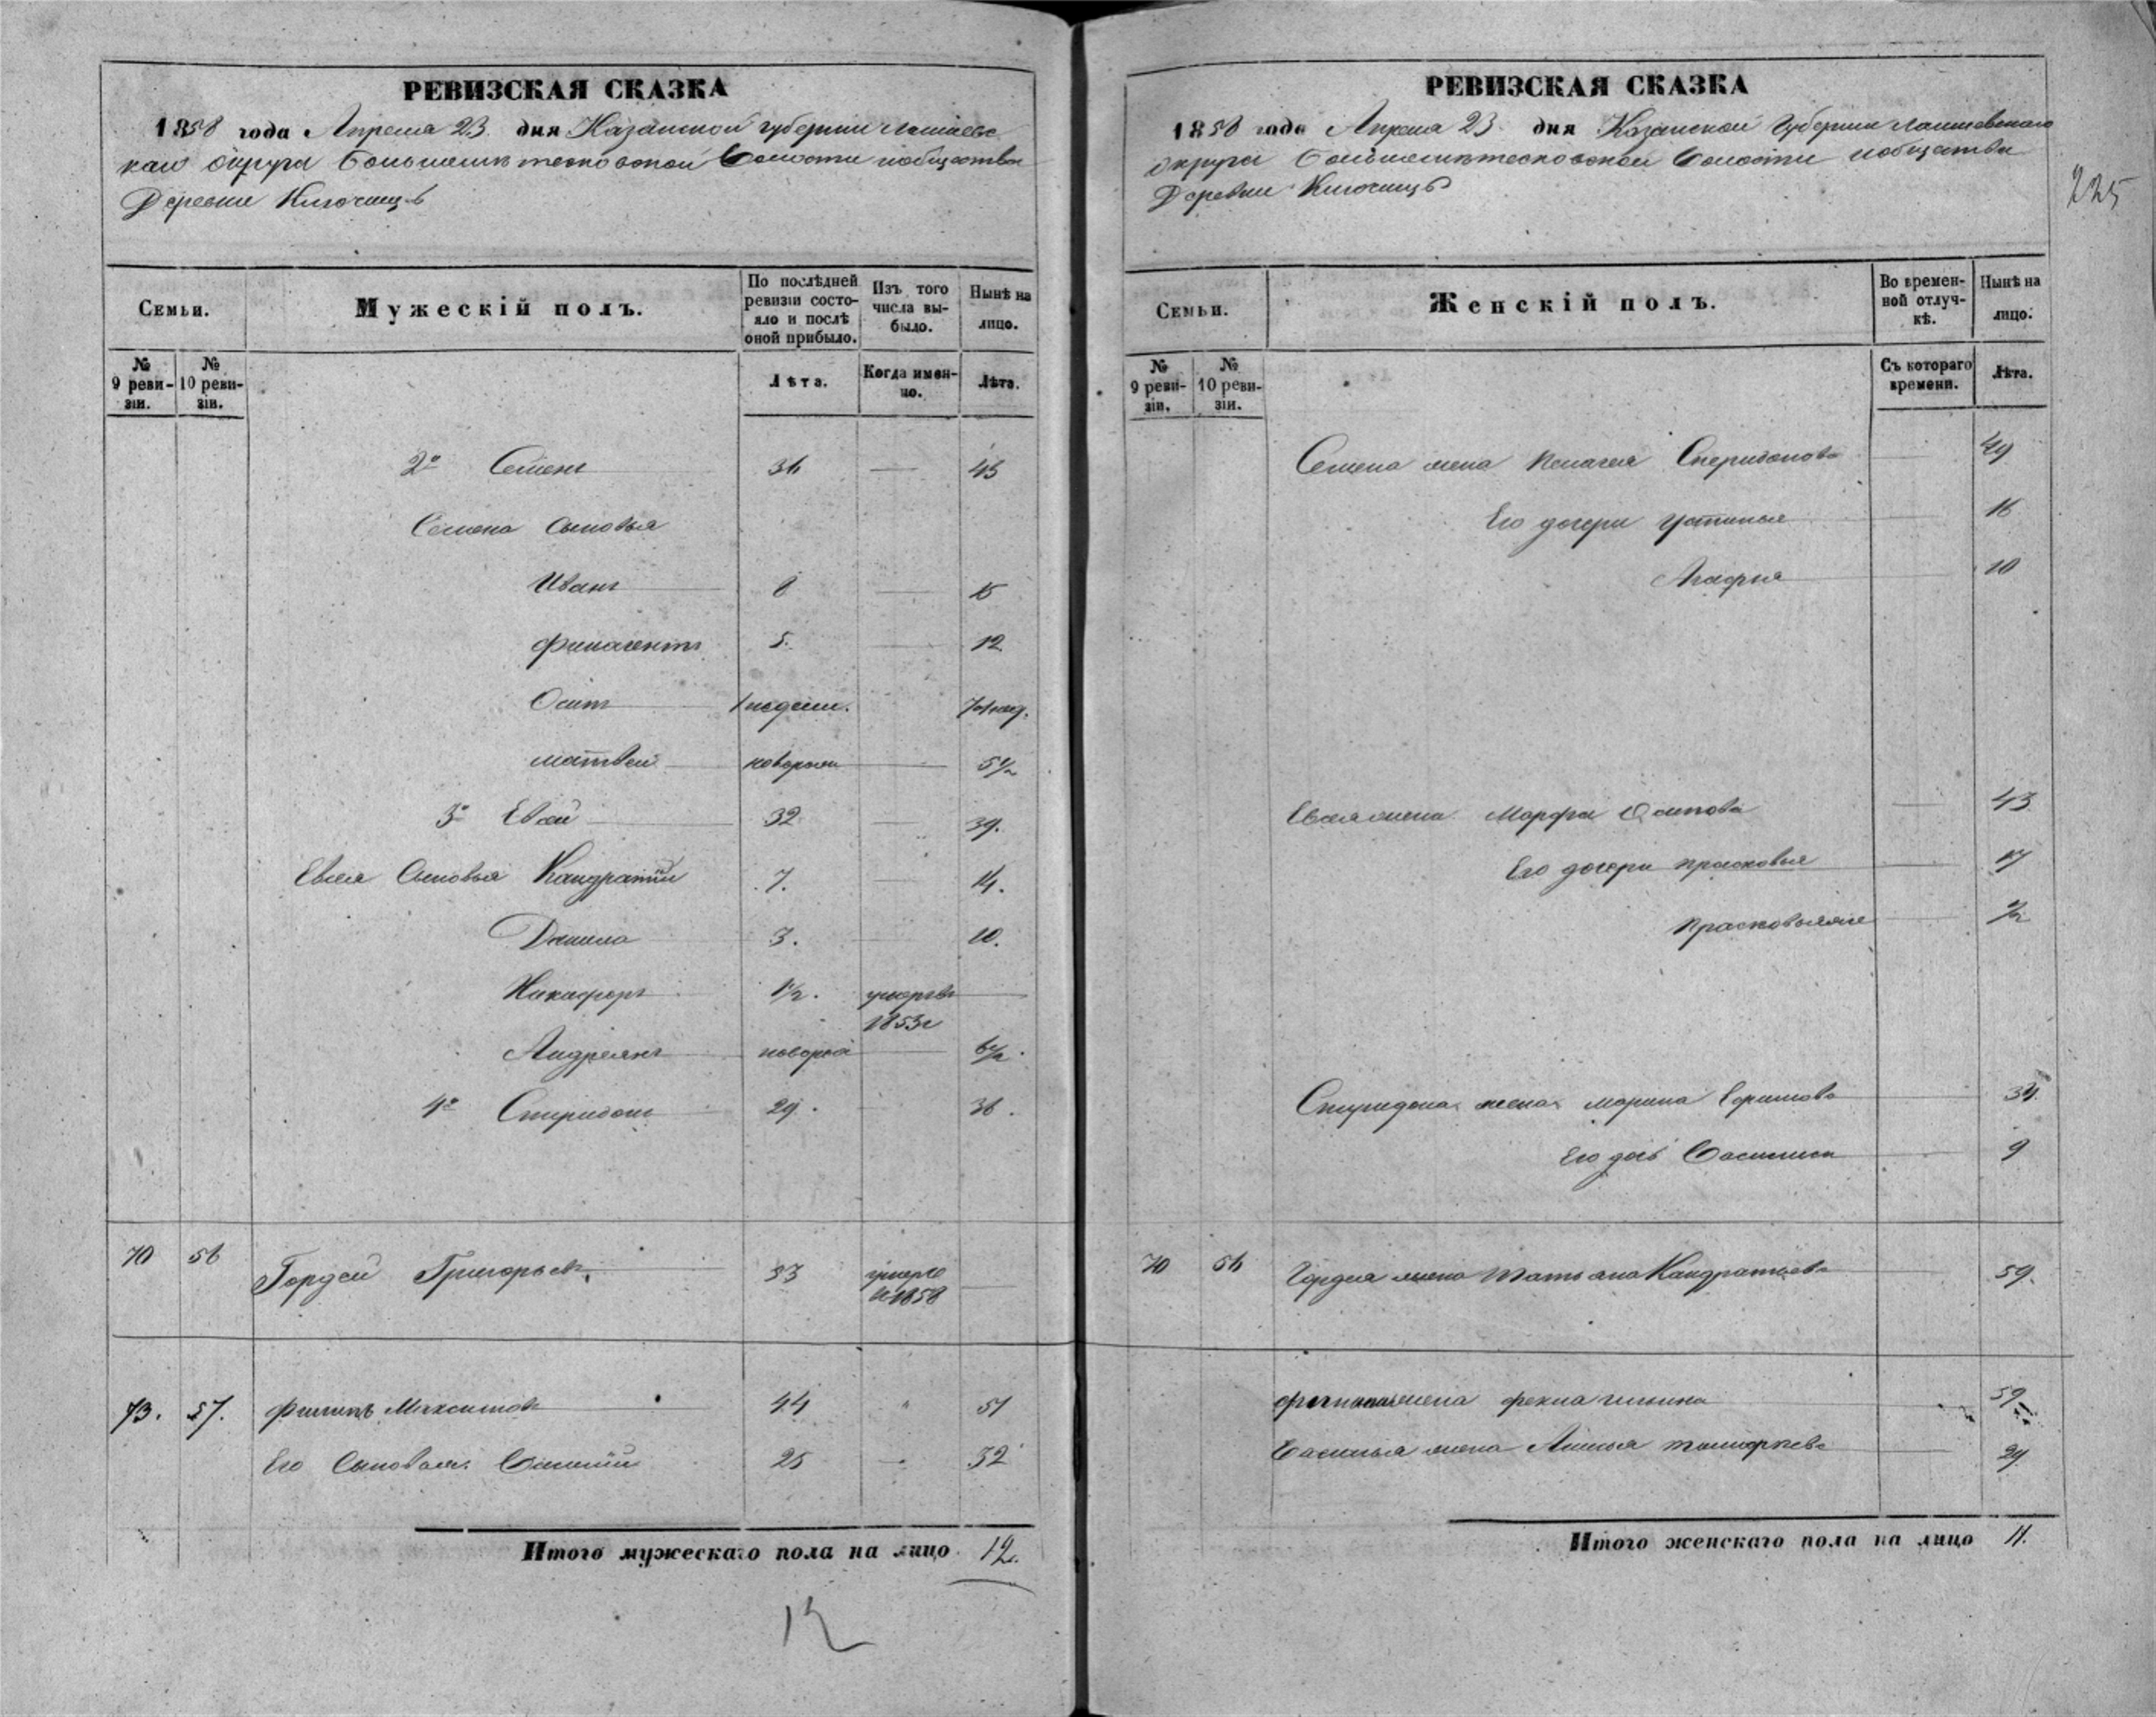 РЕВИЗСКАЯ СКАЗКА
1858 года Апреля 23 дня Казанской губернии Лаишевс
каго округа волости и общества
Деревни Ключищъ
Семьи.
Мужескій полъ.
По послѣдней ревизіи состояло и послѣ оной прибыло.
Изъ того числа выбыло.
Нынѣ на лицо.
№ 9 ревизіи.
№ 10 ревизіи.
Лѣта.
Когда именно.
Лѣта.
2й Семенъ 36 — 43
Семена сыновья
Иванъ 8 — 15
Филагентъ 5. — 12
Осипъ 1 недели. 7 1 нед.
Матвей наворож — 5 1/2
3й Евсей 32 — 39.
Евсея Сыновья Кандратий 7. — 14.
Данила 3. — 10.
Никифоръ 1 1/2. умеръ въ 1853г —
Андреянъ наворож — 6 1/2.
4й Спиридонъ 29. — 36.
70 56 Гордей Григорьевъ, 53 умеръ въ 1858 —
73. 57. Филипъ Максимовъ 44 " 51
Его Сыновья. Василий 25 — 32
Итого мужескаго пола на лицо 12.
12
РЕВИЗСКАЯ СКАЗКА
1858 года Апреля 23 дня Казанской Губернии Лаишевскаго
округа волости и общества
Деревни Ключищъ
225
Семьи.
Женскій полъ.
Во временной отлучкѣ.
Нынѣ на лицо.
№ 9 ревизіи.
№ 10 ревизіи.
Съ котораго времени.
Лѣта.
Семена жена Пелагея Спиридонова — 49
Его дочери Устинья — 16
Агафья — 10
Евсея жена Марфа Осипова — 43
Его дочери Прасковья — 17
Прасковья же — 1/2
Спиридона жена Марина Ефимова — 34.
Его дочь Василиса — 9
70 56 Гордея жена Татьяна Кандратьева — 59.
Филипа жена Фекла Ильина 59
Василья жена Анисья — 29
Итого женскаго пола на лицо 11.